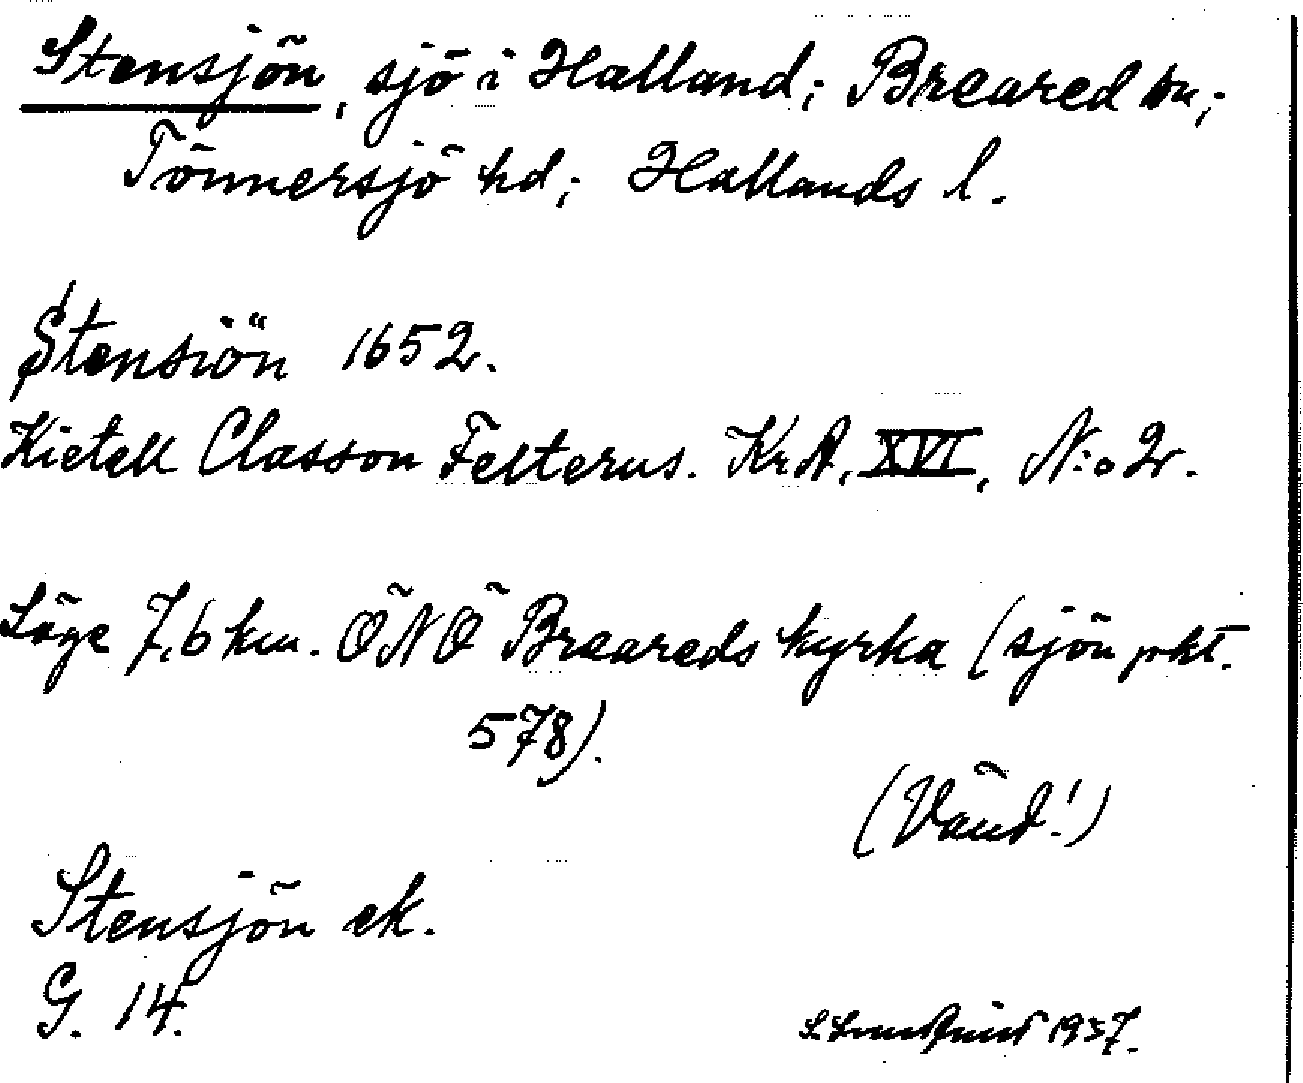 Stensjön, sjö i Halland; Breared sn;
Tönnersjö hd; Hallands l.
Stensiön 1652.
Kietell Classon Felterus. Kr. A. XVI, N:o 2.
Läge 7,6 km. ÖNÖ Breareds kyrka (sjön pkt.
578).
(Vänd!)
Stensjön ek.
G. 14.
S Lundquist 1937.